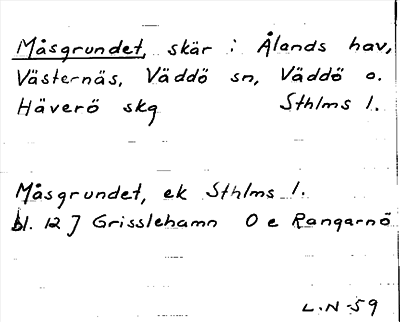 Måsgrundet, skär i Ålands hav,
Västernäs, Väddö sn, Väddö o.
Häverö skg Sthlms l.
Måsgrundet, ek Sthlms l.
bl. 12 J Grisslehamn O e Rangarnö
L.N-59